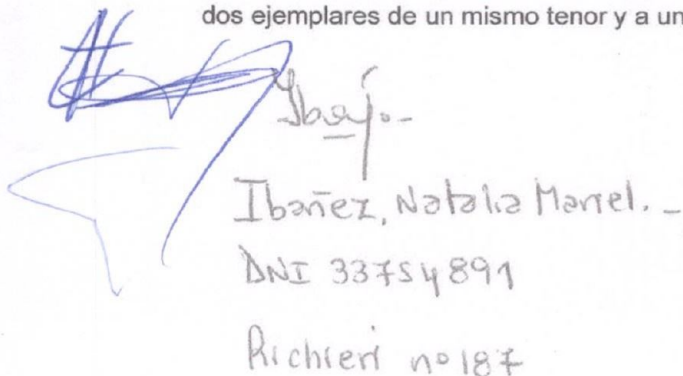 dos ejemplares de un mismo tenor y a un
Ibañez, Natalia Mariel. -
DNI 33754891
Richieri nº 187